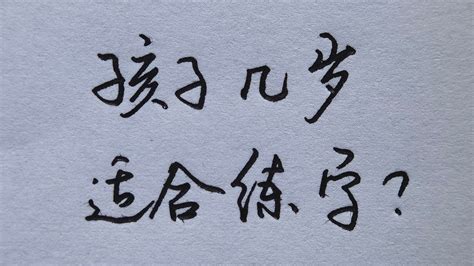 孩子几岁
适合练字?